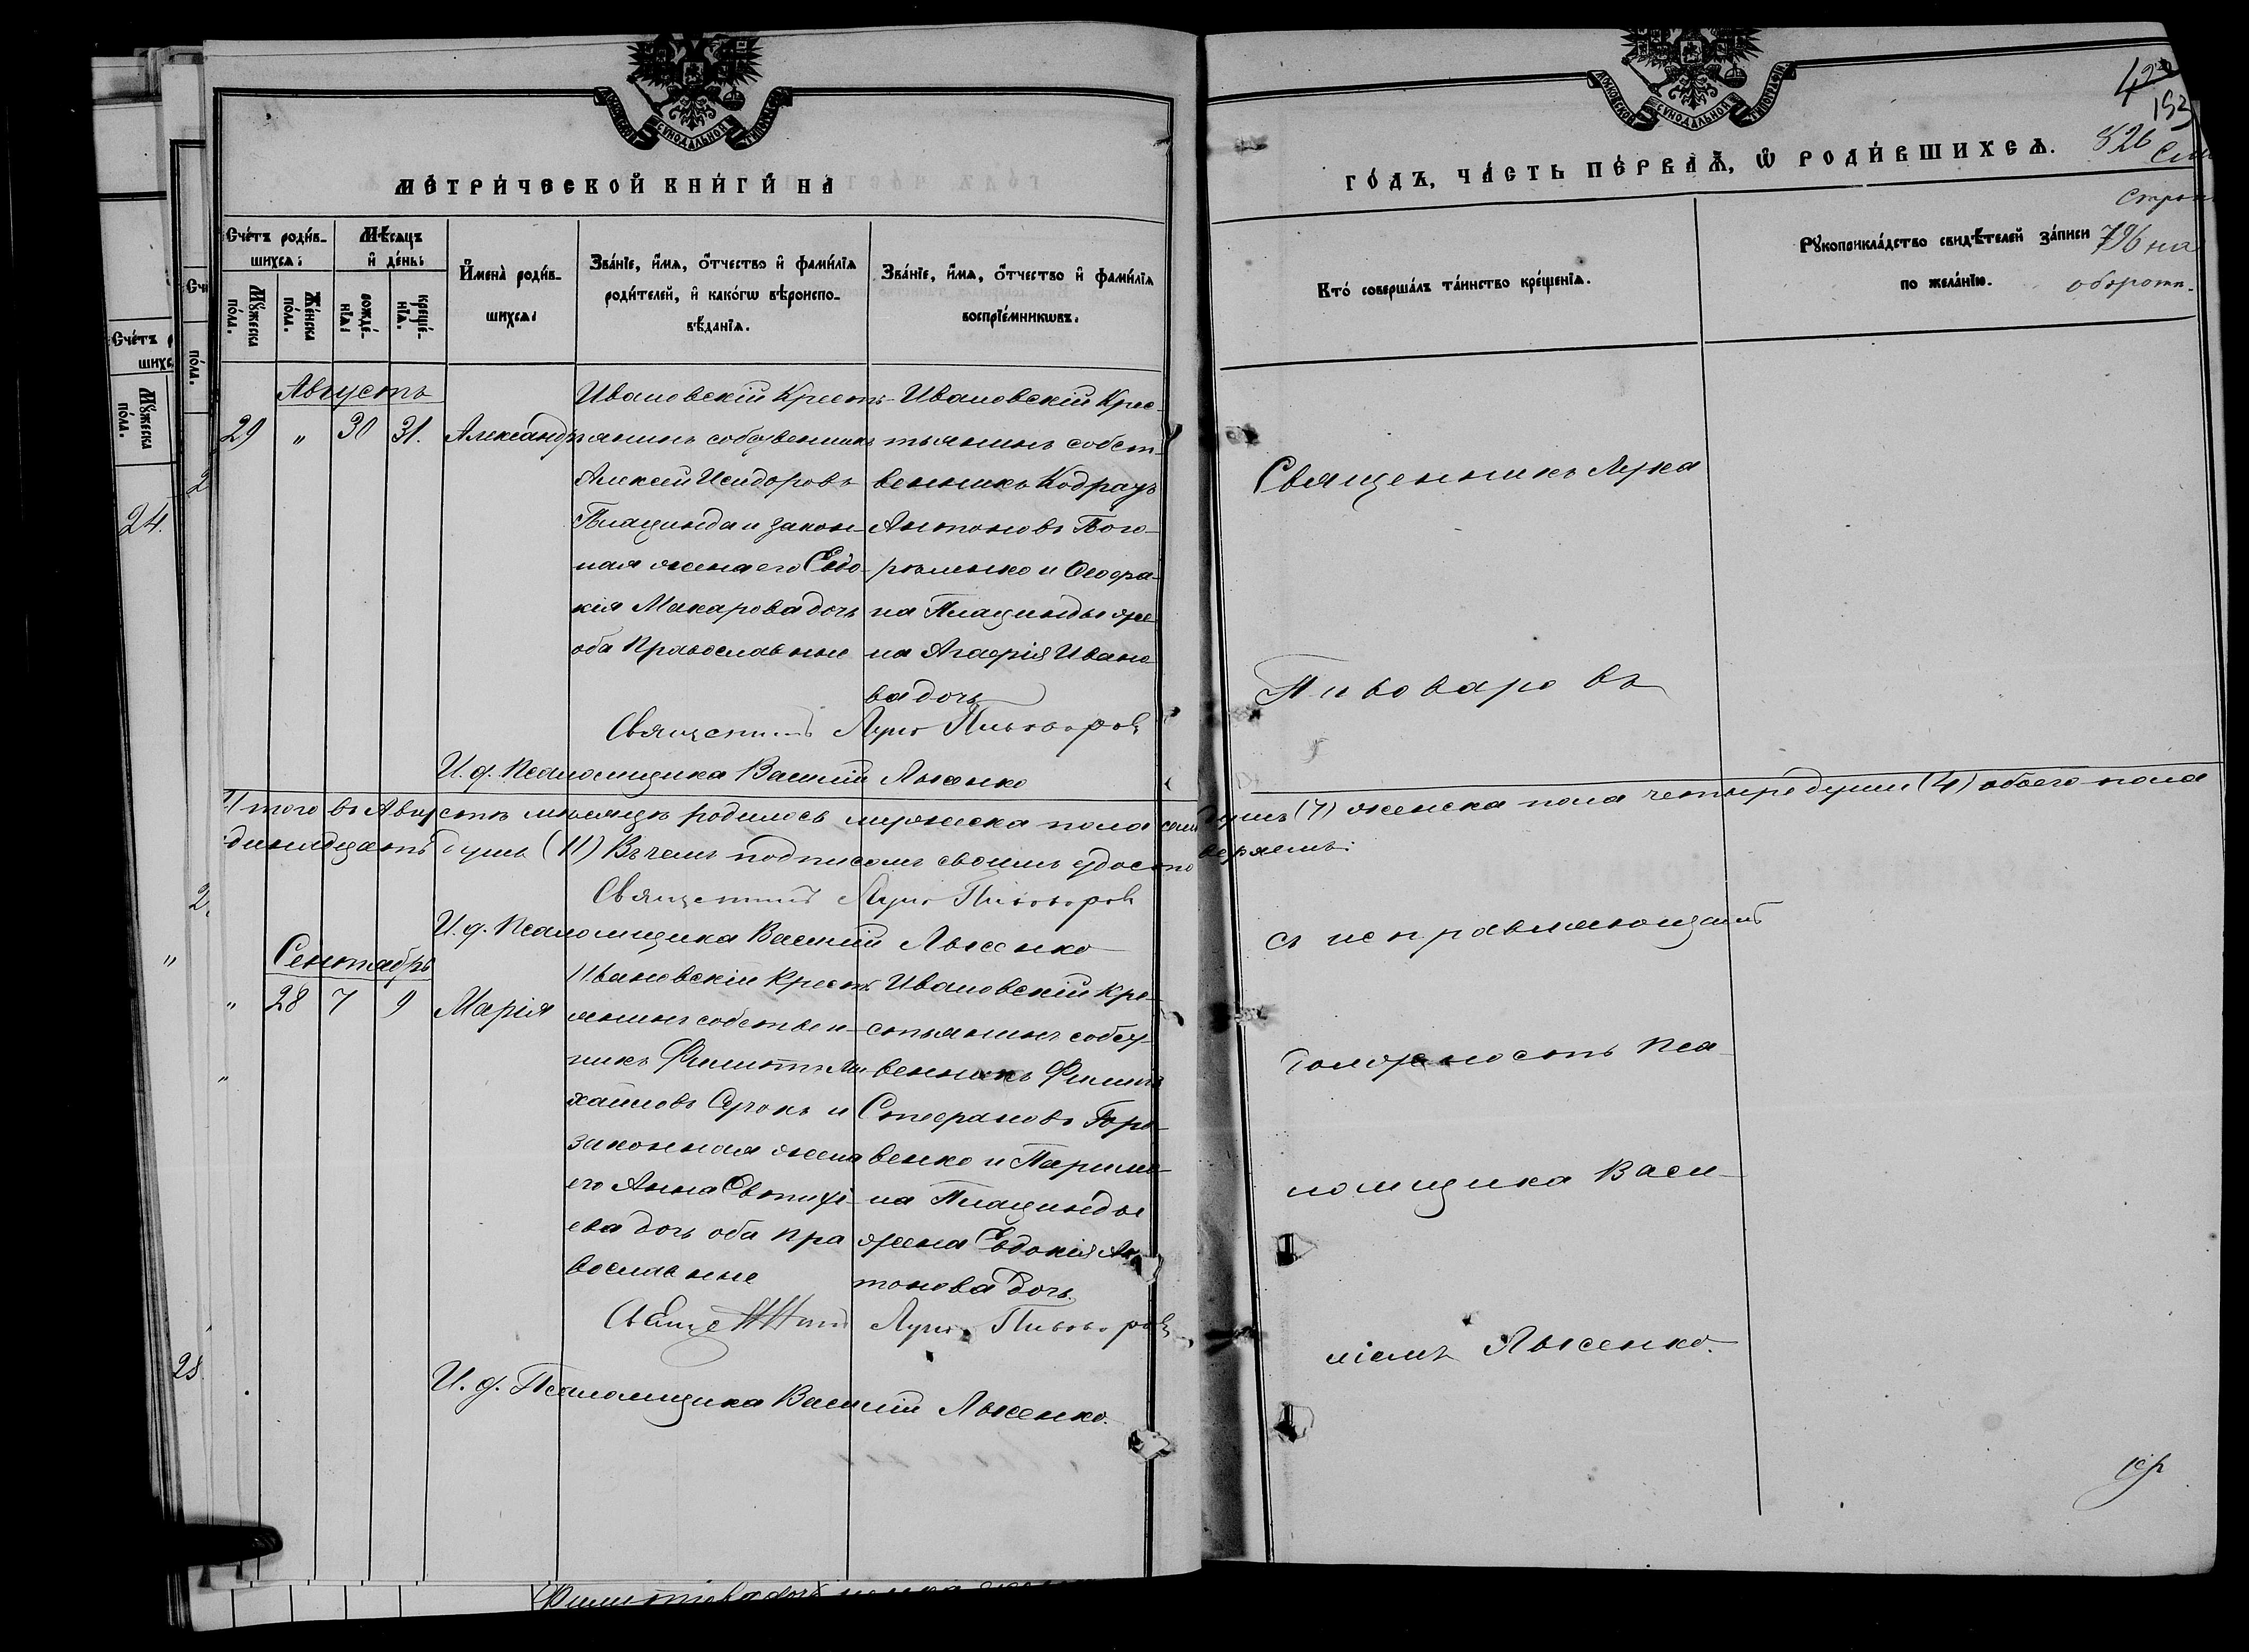 МОСКОВСКОЙ СУНОДАЛЬНОЙ ТИПОГРАФІИ
МЕТРИЧЕСКОЙ КНИГИ НА
Счетъ родив-
шихся:
Мѣсяцъ
и день:
Мужеска
пола.
Женска
пола.
рожде-
нія:
креще-
нія.
Имена родив-
шихся:
Званіе, имя, отчество и фамилія
родителей, и какого вѣроиспо-
вѣданія.
Званіе, имя, отчество и фамилія
воспріемниковъ.
Августъ
29 " 30 31. Александръ
Ивановскій Крестъ-
янинъ собственникъ
Алексей Исидоровъ
Плацинда и закон-
ная жена его Евдо-
кія Макарова дочь
оба Православные
Ивановскій Крес-
тьянинъ собст-
венникъ Кодратъ
Антоновъ Бого-
и Феофа-
на Плацинды же-
на Агафія Ивано-
ва дочь
Священникъ Лука Пивоваровъ
И. д. Псаломщика Василій Лысенко
Итого въ Августѣ мѣсяцѣ родилось мужеска пола семь душъ (7) женска пола четыре души (4) обоего пола
одинадцать душъ (11) Въ чемъ подписомъ своимъ удостоверяемъ:
Священникъ Лука Пивоваровъ
И. д. Псаломщика Василій Лысенко
Сентябрь
" 28 7 9 Марія
Ивановскій Крестъ-
янинъ собствен-
никъ Филиппъ Ми-
хайловъ Сурокъ и
законная жена
его Анна Евтихі-
ева дочь оба пра
вославные
Ивановскій Кре-
стьянинъ собст-
венникъ Филипъ
Стефановъ Горо-
венко и
на Плацинды
жена Евдокія Ан-
тонова дочь.
Священникъ Лука Пивоваровъ
И. д. Псаломщика Василій Лысенко.
МОСКОВСКОЙ СУНОДАЛЬНОЙ ТИПОГРАФІИ
ГОДЪ, ЧАСТЬ ПЕРВАЯ, Ѿ РОДИВШИХСЯ.
826
Кто совершалъ таинство крещенія.
Рукоприкладство свидѣтелей записи
по желанію.
796 на
оборотн.
Священникъ Лука
Пивоваровъ
съ исправляющимъ
должность пса-
ломщика Васи-
ліемъ Лысенко.
Счетъ р
шихс
Мужеска
пола.
24.
28